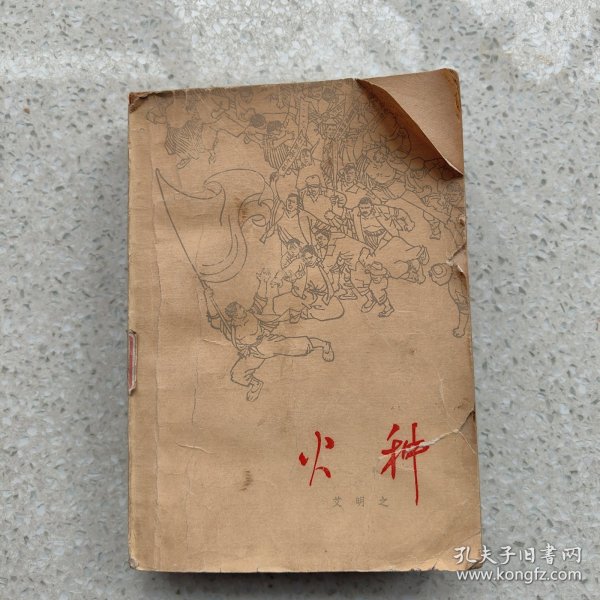 火种
艾明之
孔夫子旧書网
www.kongfz.com